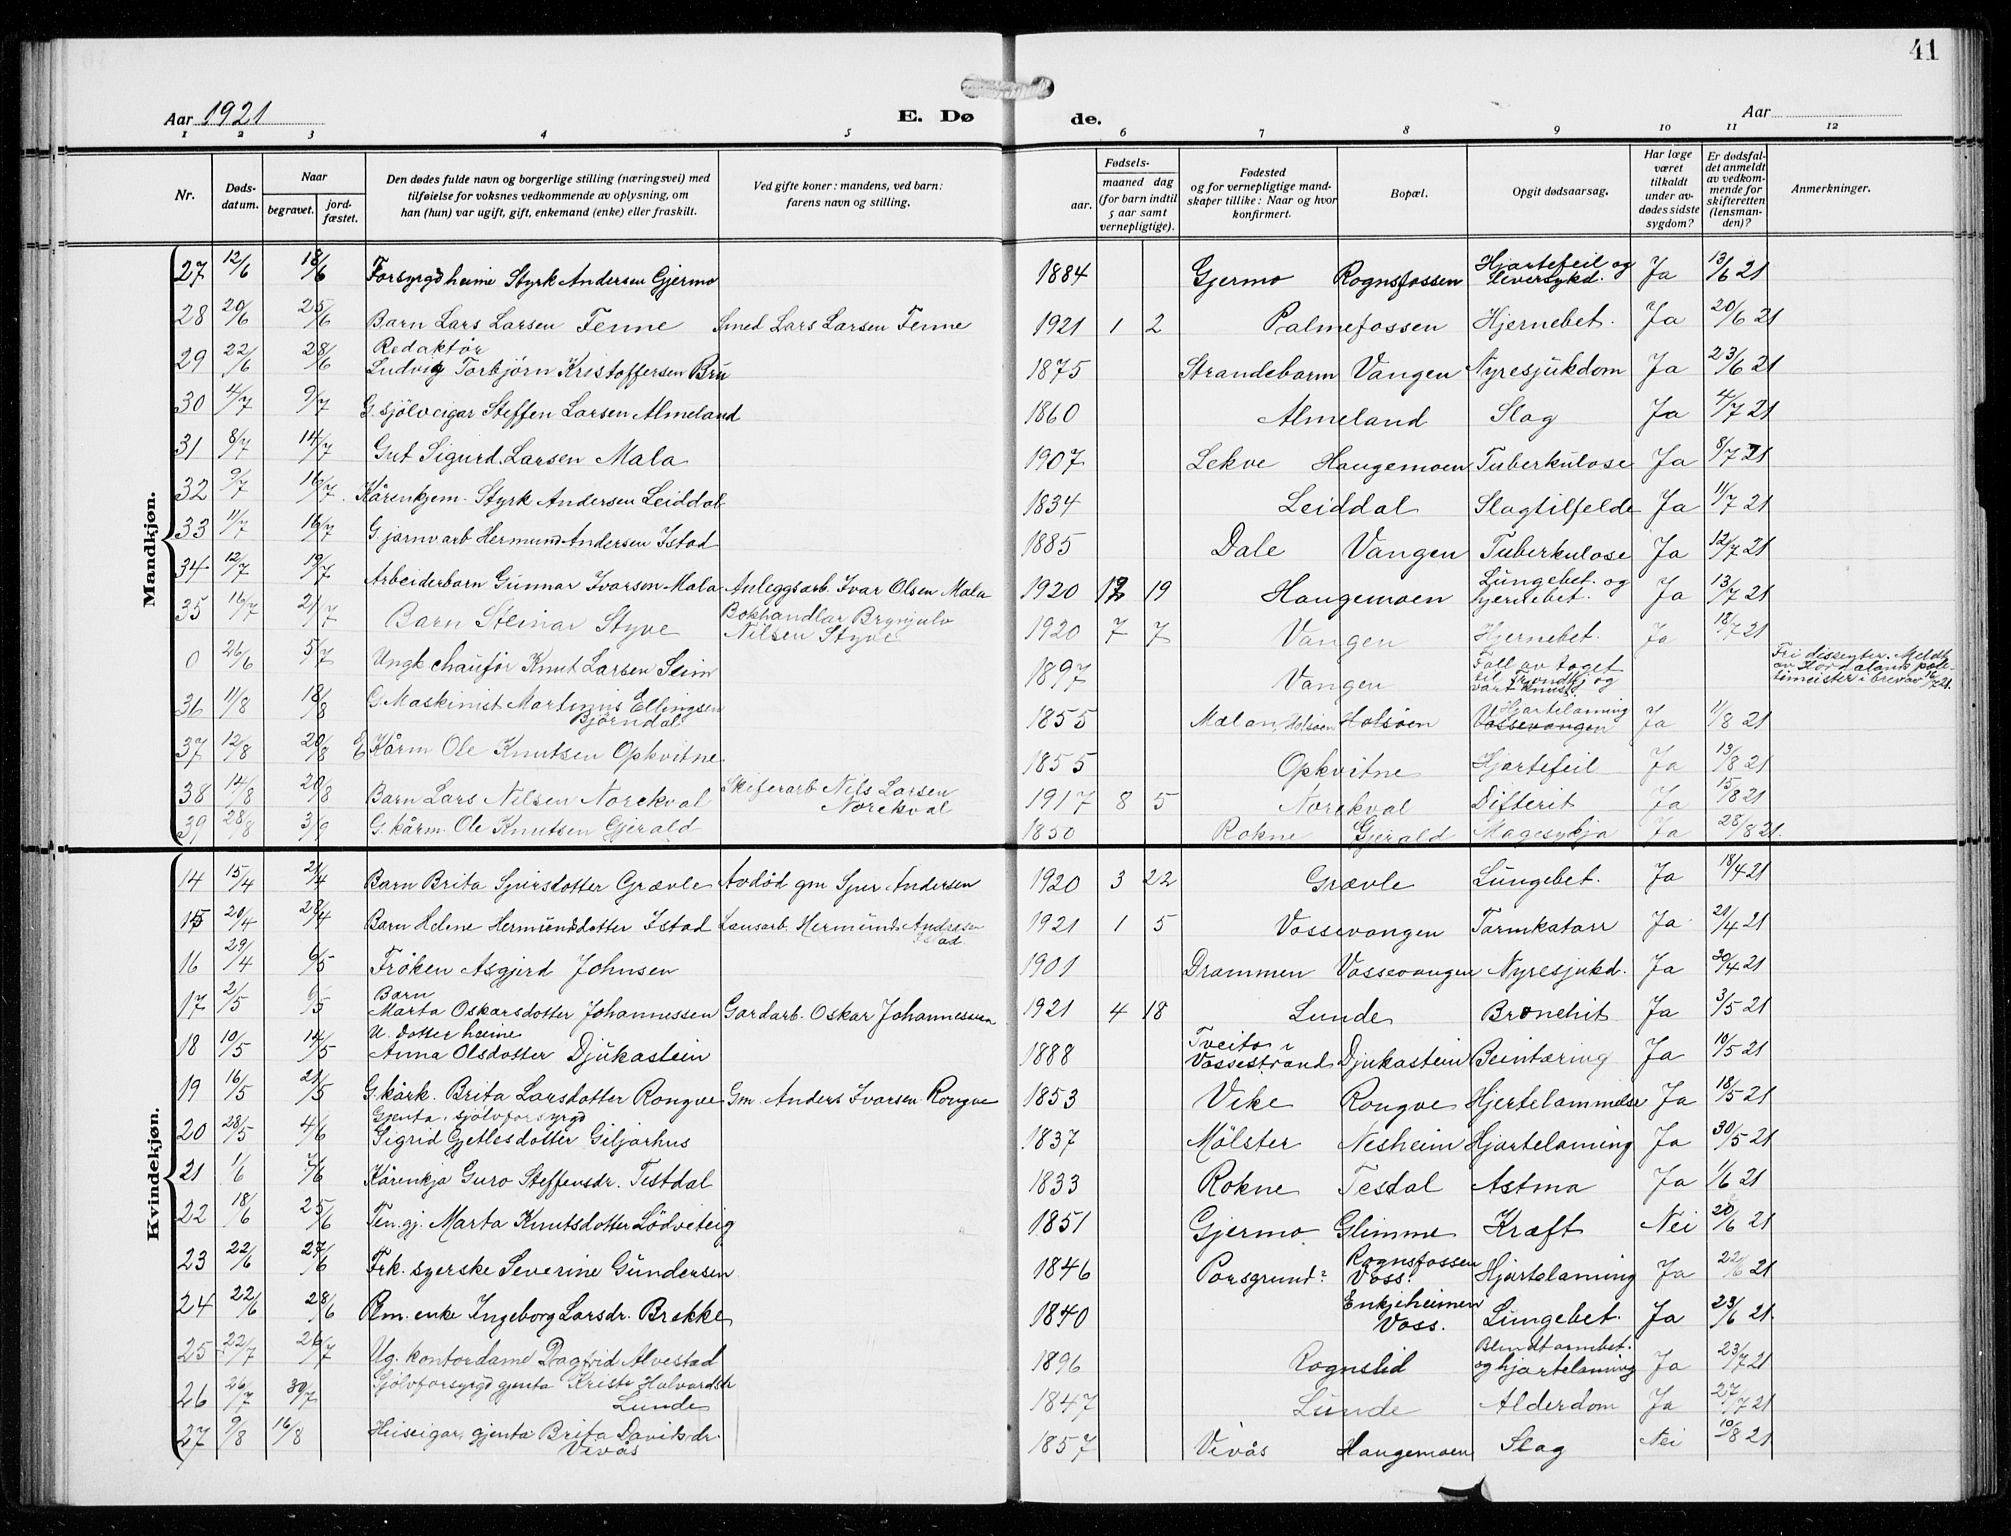 41
Aar 1921
E. Dø de.
Aar
1 2 3 4 5 6 7 8 9 10 11 12
Nr.
Døds-
datum.
Naar
begravet.
jord-
fæstet.
Den dødes fulde navn og borgerlige stilling (næringsvei) med
tilføielse for voksnes vedkommende av oplysning, om
han (hun) var ugift, gift, enkemand (enke) eller fraskilt.
Ved gifte koner: mandens, ved barn:
farens navn og stilling.
Fødsels-
aar.
maaned dag
(for barn indtil
5 aar samt
vernepligtige).
Fødested
og for vernepligtige mand-
skaper tillike: Naar og hvor
konfirmert.
Bopæl.
Opgit dødsaarsag.
Har læge
været
tilkaldt
under av-
dødes sidste
sygdom?
Er dødsfal-
det anmeldt
av vedkom-
mende for
skifteretten
(lensman-
den)?
Anmerkninger.
Mandkjøn.
27 12/6 18/6 Forsyrgd heime Styrk Andersen Gjermo 1884 Gjermo Rognsfossen Hjartefeil og Leversykd. Ja 13/6 21
28 20/6 25/6 Barn Lars Larsen Tenne Smed Lars Larsen Tenne 1921 1 2 Palmefossen Hjernebet. Ja 20/6 21
29 22/6 28/6 Redaktør Ludvig Torbjørn Kristoffersen Bru 1875 Strandebarm Vangen Nyresjukdom Ja 23/6 21
30 4/7 9/7 G. sjölveigar Steffen Larsen Almeland 1860 Almeland Slag Ja 4/7 21
31 8/7 14/7 Gut Sigurd Larsen Mala 1907 Lekve Haugemoen Tuberkulose Ja 8/7 21
32 9/7 16/7 Kårenkjem. Styrk Andersen Leiddal 1834 Leiddal Slagtilfelde Ja 11/7 21
33 11/7 16/7 G. jarnv arb Hermund Andersen Istad 1885 Dale Vangen Tuberkulose Ja 12/7 21
34 12/7 19/7 Arbeiderbarn Gunnar Ivarsen Mala Anleggsarb. Ivar Olsen Mala 1920 12 19 Haugemoen Lungebet. og hjernebet. Ja 13/7 21
35 16/7 21/7 Barn Steinar Styve Bokhandlar Brynjulv Nilsen Styve 1920 7 7 Vangen Hjernebet. Ja 18/7 21
0 26/6 5/7 Ungk chauför Knut Larsen Seim 1897 Vangen Fall av toget til Trondhj og vart knust. Fri dissenter. Meldt av Hordalands politimeister i brev av 16/7 21.
36 11/8 18/8 G. Maskinist Martinus Ellingsen Björndal 1855 Hatsöen Hjartelaming Vossevangen Ja 11/8 21
37 12/8 20/8 E Kårm Ole Knutsen Opkvitne 1855 Opkvitne Hjartefeil Ja 13/8 21
38 14/8 20/8 Barn Lars Nilsen Norekval Skiferarb Nils Larsen Norekval 1917 8 5 Norekval Difterit Ja 15/8 21
39 28/8 3/9 G. kårm. Ole Knutsen Gjerald 1850 Rokne Gjerald Magesykja Ja 28/8 21.
Kvindekjøn.
14 15/4 21/4 Barn Brita Sjursdotter Grævle Avdöd gm Sjur Andersen 1920 3 22 Grævle Lungebet. Ja 18/4 21
15 20/4 28/4 Barn Helene Hermundsdotter Istad Lausarb. Hermund Andersen Istad 1921 1 5 Vossevangen Tarmkatarr Ja 21/4 21
16 29/4 6/5 Fröken Asgjerd Johnsen 1901 Drammen Vossevangen Nyresjukd. Ja 30/4 21
17 2/5 /5 Barn Marta Oskarsdotter Johannessen Gardarb. Oskar Johannessen 1921 4 18 Lunde Bronchit Ja 3/5 21
18 10/5 14/5 U. dotter heime Anna Olsdotter Djukastein 1888 Tveito i Vossestrand Djukastein Beintæring Ja 10/5 21
19 16/5 21/5 G. kårk. Brita Larsdotter Rongve Gm. Anders Ivarsen Rongve 1853 Vike Rongve Hjertelammelse Ja 18/5 21
20 28/5 4/6 Gjenta, sjölvforsyrgd Sigrid Gjetlesdotter Giljarhus 1837 Mölster Nesheim Hjartelaming Ja 30/5 21
21 1/6 7/6 Kårenkja Guro Steffensdr. Testdal 1833 Rokne Tesdal Astma Ja 1/6 21
22 18/6 25/6 Ten. gj. Marta Knutsdotter Lödveteig 1851 Gjermo Glimme Kræft Nei 20/6 21
23 22/6 27/6 Frk. syerske Severine Gundersen 1846 Porsgrund? Rognsfossen Voss. Hjartelaming Ja 22/6 21
24 22/6 28/6 Pm. enke Ingeborg Larsdr. Brekke 1840 Enkjeheimen Voss. Lungebet. Ja 23/6 21.
25 22/7 26/7 Ug. kontordame Dagfrid Alvestad 1896 Rognslid Blindtarmbet. og hjartelaming Ja 23/7 21
26 26/7 30/7 Sjölvforsyrgd gjenta Kristi Halvardsdr Lunde 1847 Lunde Alderdom Ja 27/7 21
27 9/8 16/8 Huseigar, gjenta Brita Davidsdr. Vivås 1857 Vivås Haugemoen Slag Nei 10/8 21